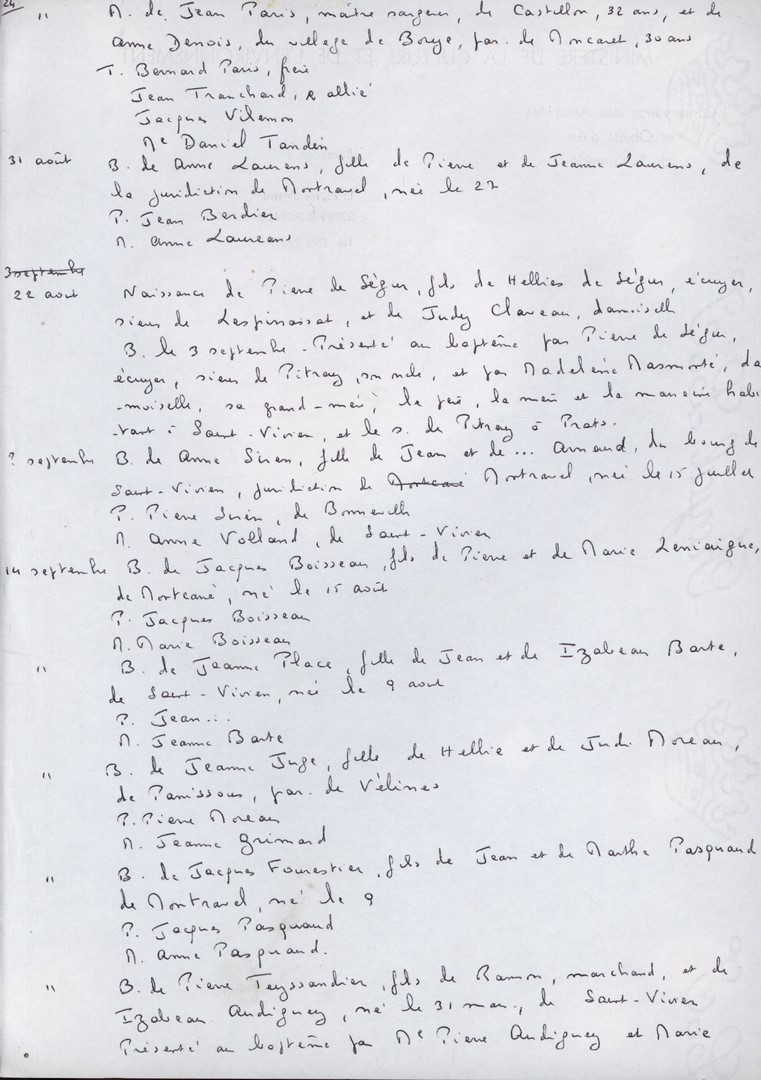 24
" M. de Jean Paris, maître sargeur, de Castillon, 32 ans, et de
Anne Denois, du village de Bouye, par. de Moncaret, 30 ans
T. Bernard Paris, frère
Jean Tranchard, allié
Jacques Vilemon
Me Daniel Tandin
31 août B. de Anne Laurens, fille de Pierre et de Jeanne Laurens, de
la juridiction de Montravel, née le 27
P. Jean Berdier
M. Anne Laureans
3 septembre
22 août Naissance de Pierre de Ségur, fils de Hellies de Ségur, écuyer,
sieur de Lespinassat, et de Judy Claveau, damoiselle
B. le 3 septembre - Présenté au baptême par Pierre de Ségur,
écuyer, sieur de Pitray, son oncle, et par Madeleine Masmonté, da
-moiselle, sa grand-mère, le père, la mère et la marraine habi
-tant à Saint-Vivien, et le s. de Pitray à Prats.
? septembre B. de Anne Siren, fille de Jean et de ... Arnaud, du bourg de
Saint-Vivien, juridiction de Montravel, née le 15 juillet
P. Pierre Sirén, de Bonneville
M. Anne Volland, de Saint-Vivien
14 septembre B. de Jacques Boisseau, fils de Pierre et de Marie
de Montcaré, né le 15 août
P. Jacques Boisseau
M. Marie Boisseau
" B. de Jeanne Place, fille de Jean et de Izabeau Barte,
de Saint-Vivien, née le 9 août
P. Jean ...
M. Jeanne Barte
" B. de Jeanne Juge, fille de Hellie et de Judi Moreau,
de Panissous, par. de Vélines
P. Pierre Moreau
M. Jeanne Grimard
" B. de Jacques Fourestier, fils de Jean et de Marthe Pasquaud
de Montravel, né le 9
P. Jacques Pasquaud
M. Anne Pasquaud.
" B. de Pierre Teyssandier, fils de Ramon, marchand, et de
Izabeau Audiguey, né le 31 mars, de Saint-Vivien
Présenté au baptême par Me Pierre Audiguey et Marie